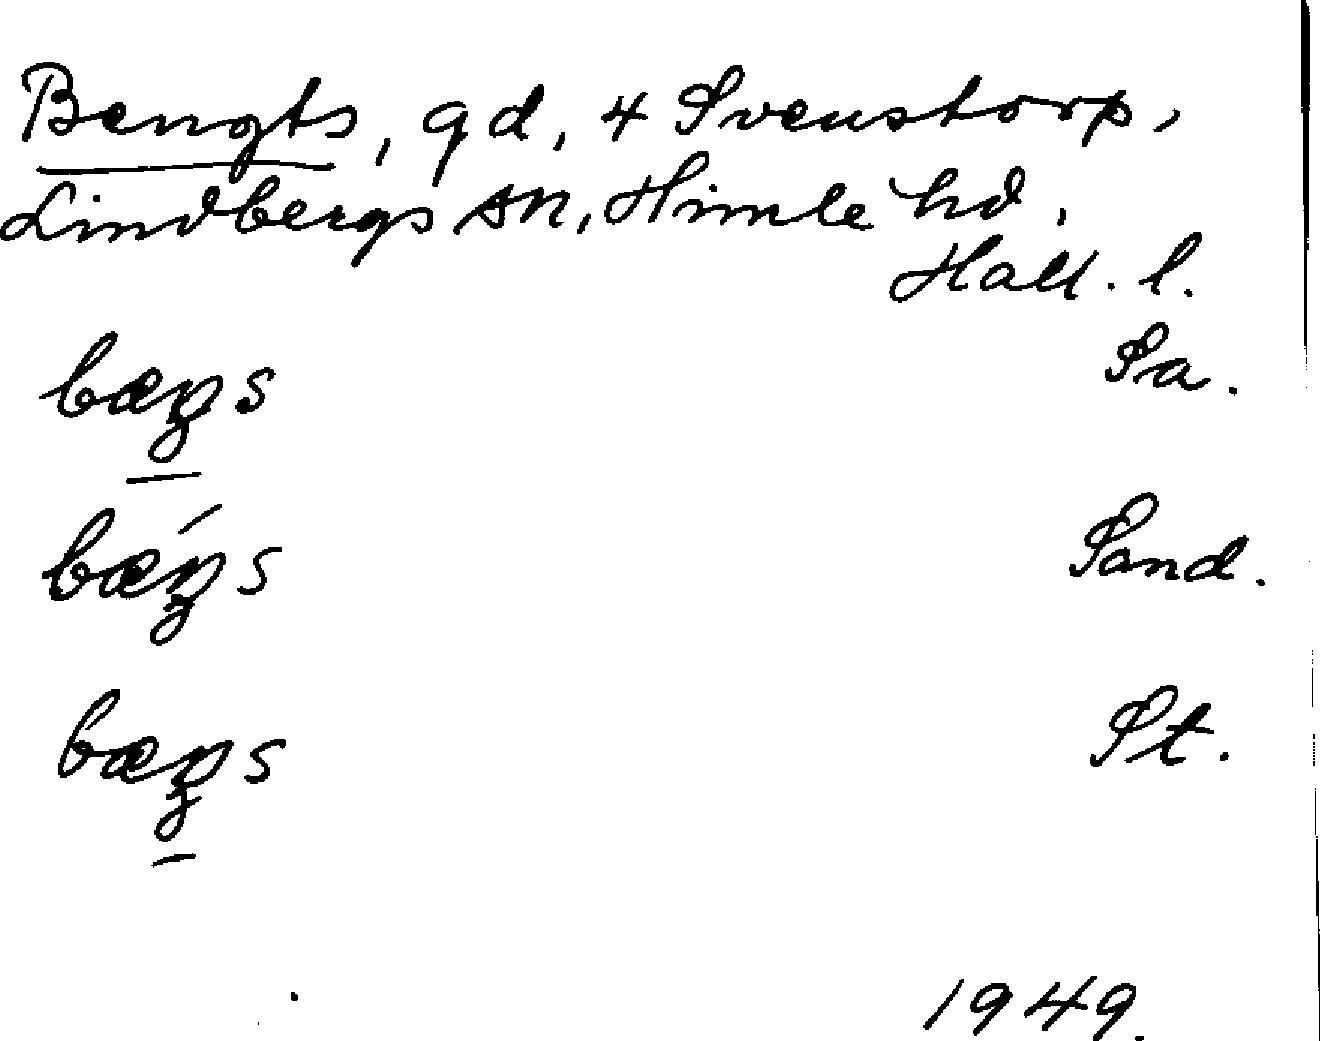 Bengts, gd, 4 Svenstorp,
Lindbergs sn, Himle hd,
Hall. l.
bæŋs Sa.
bǽŋs Sand.
bæŋs St.
1949.